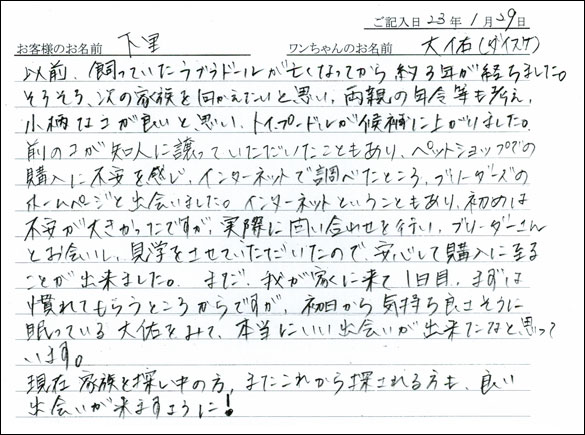 ご記入日 23年 1月 29日
お客様のお名前 下里 ワンちゃんのお名前 大佑(ダイスケ)
以前、飼っていたラブラドールが亡くなってから約3年が経ちました。
そろそろ、次の家族を向かえたいと思い、両親の年令等も考え、
小柄なコが良いと思い、トイプードルが候補に上がりました。
前のコが知人に譲っていただいたこともあり、ペットショップでの
購入に不安を感じ、インターネットで調べたところ、ブリーダーズの
ホームページと出会いました。インターネットということもあり、初めは
不安が大きかったですが、実際に問い合わせを行い、ブリーダーさん
とお会いし、見学をさせていただいたので、安心して購入に至る
ことが出来ました。まだ、我が家に来て1日目、まずは
慣れてもらうところからですが、初日から気持ち良さそうに
眠っている大佑をみて、本当にいい出会いが出来たなと思って
います。
現在家族を探し中の方、またこれから探される方も、良い
出会いが来ますように!